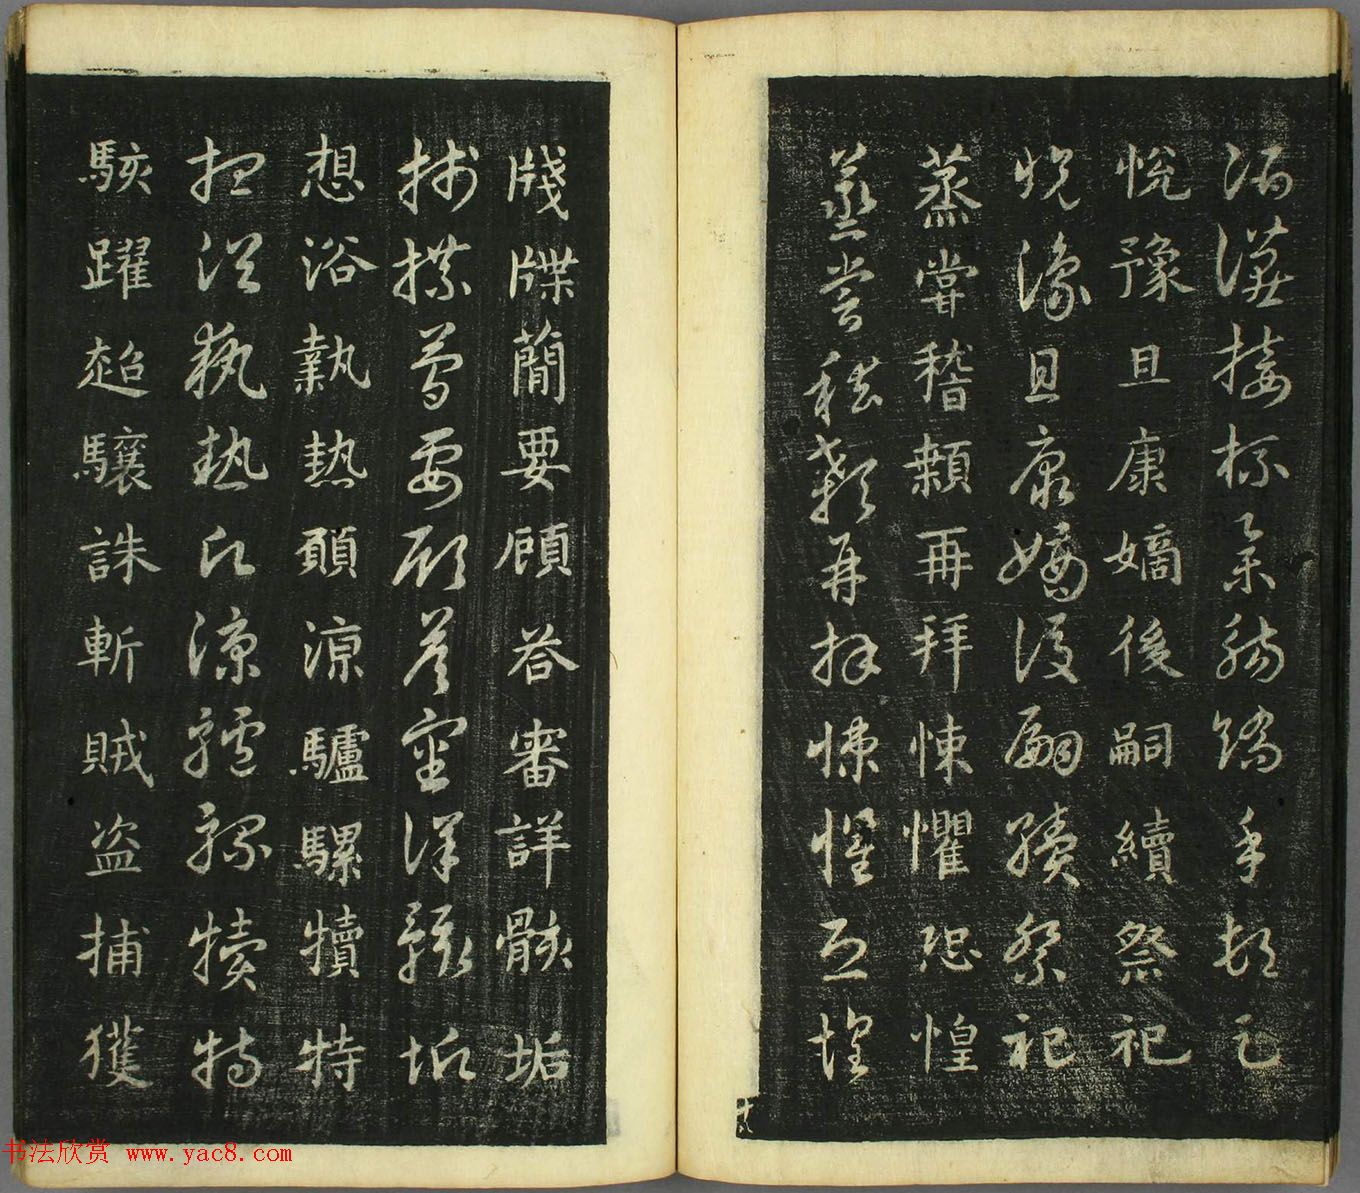 酒讌接杯舉觴矯手頓足
悅豫且康嫡後嗣續祭祀
悅豫且康嫡後嗣續祭祀
蒸甞稽顙再拜悚懼恐惶
蒸甞稽顙再拜悚懼恐惶
十八
牋牒蕳要顧荅審詳骸垢
牋牒蕳要顧荅審詳骸垢
想浴執熱願涼驢騾犢特
想浴執熱願涼驢騾犢特
駭躍超驤誅斬賊盗捕獲
书法欣赏 www.yac8.com